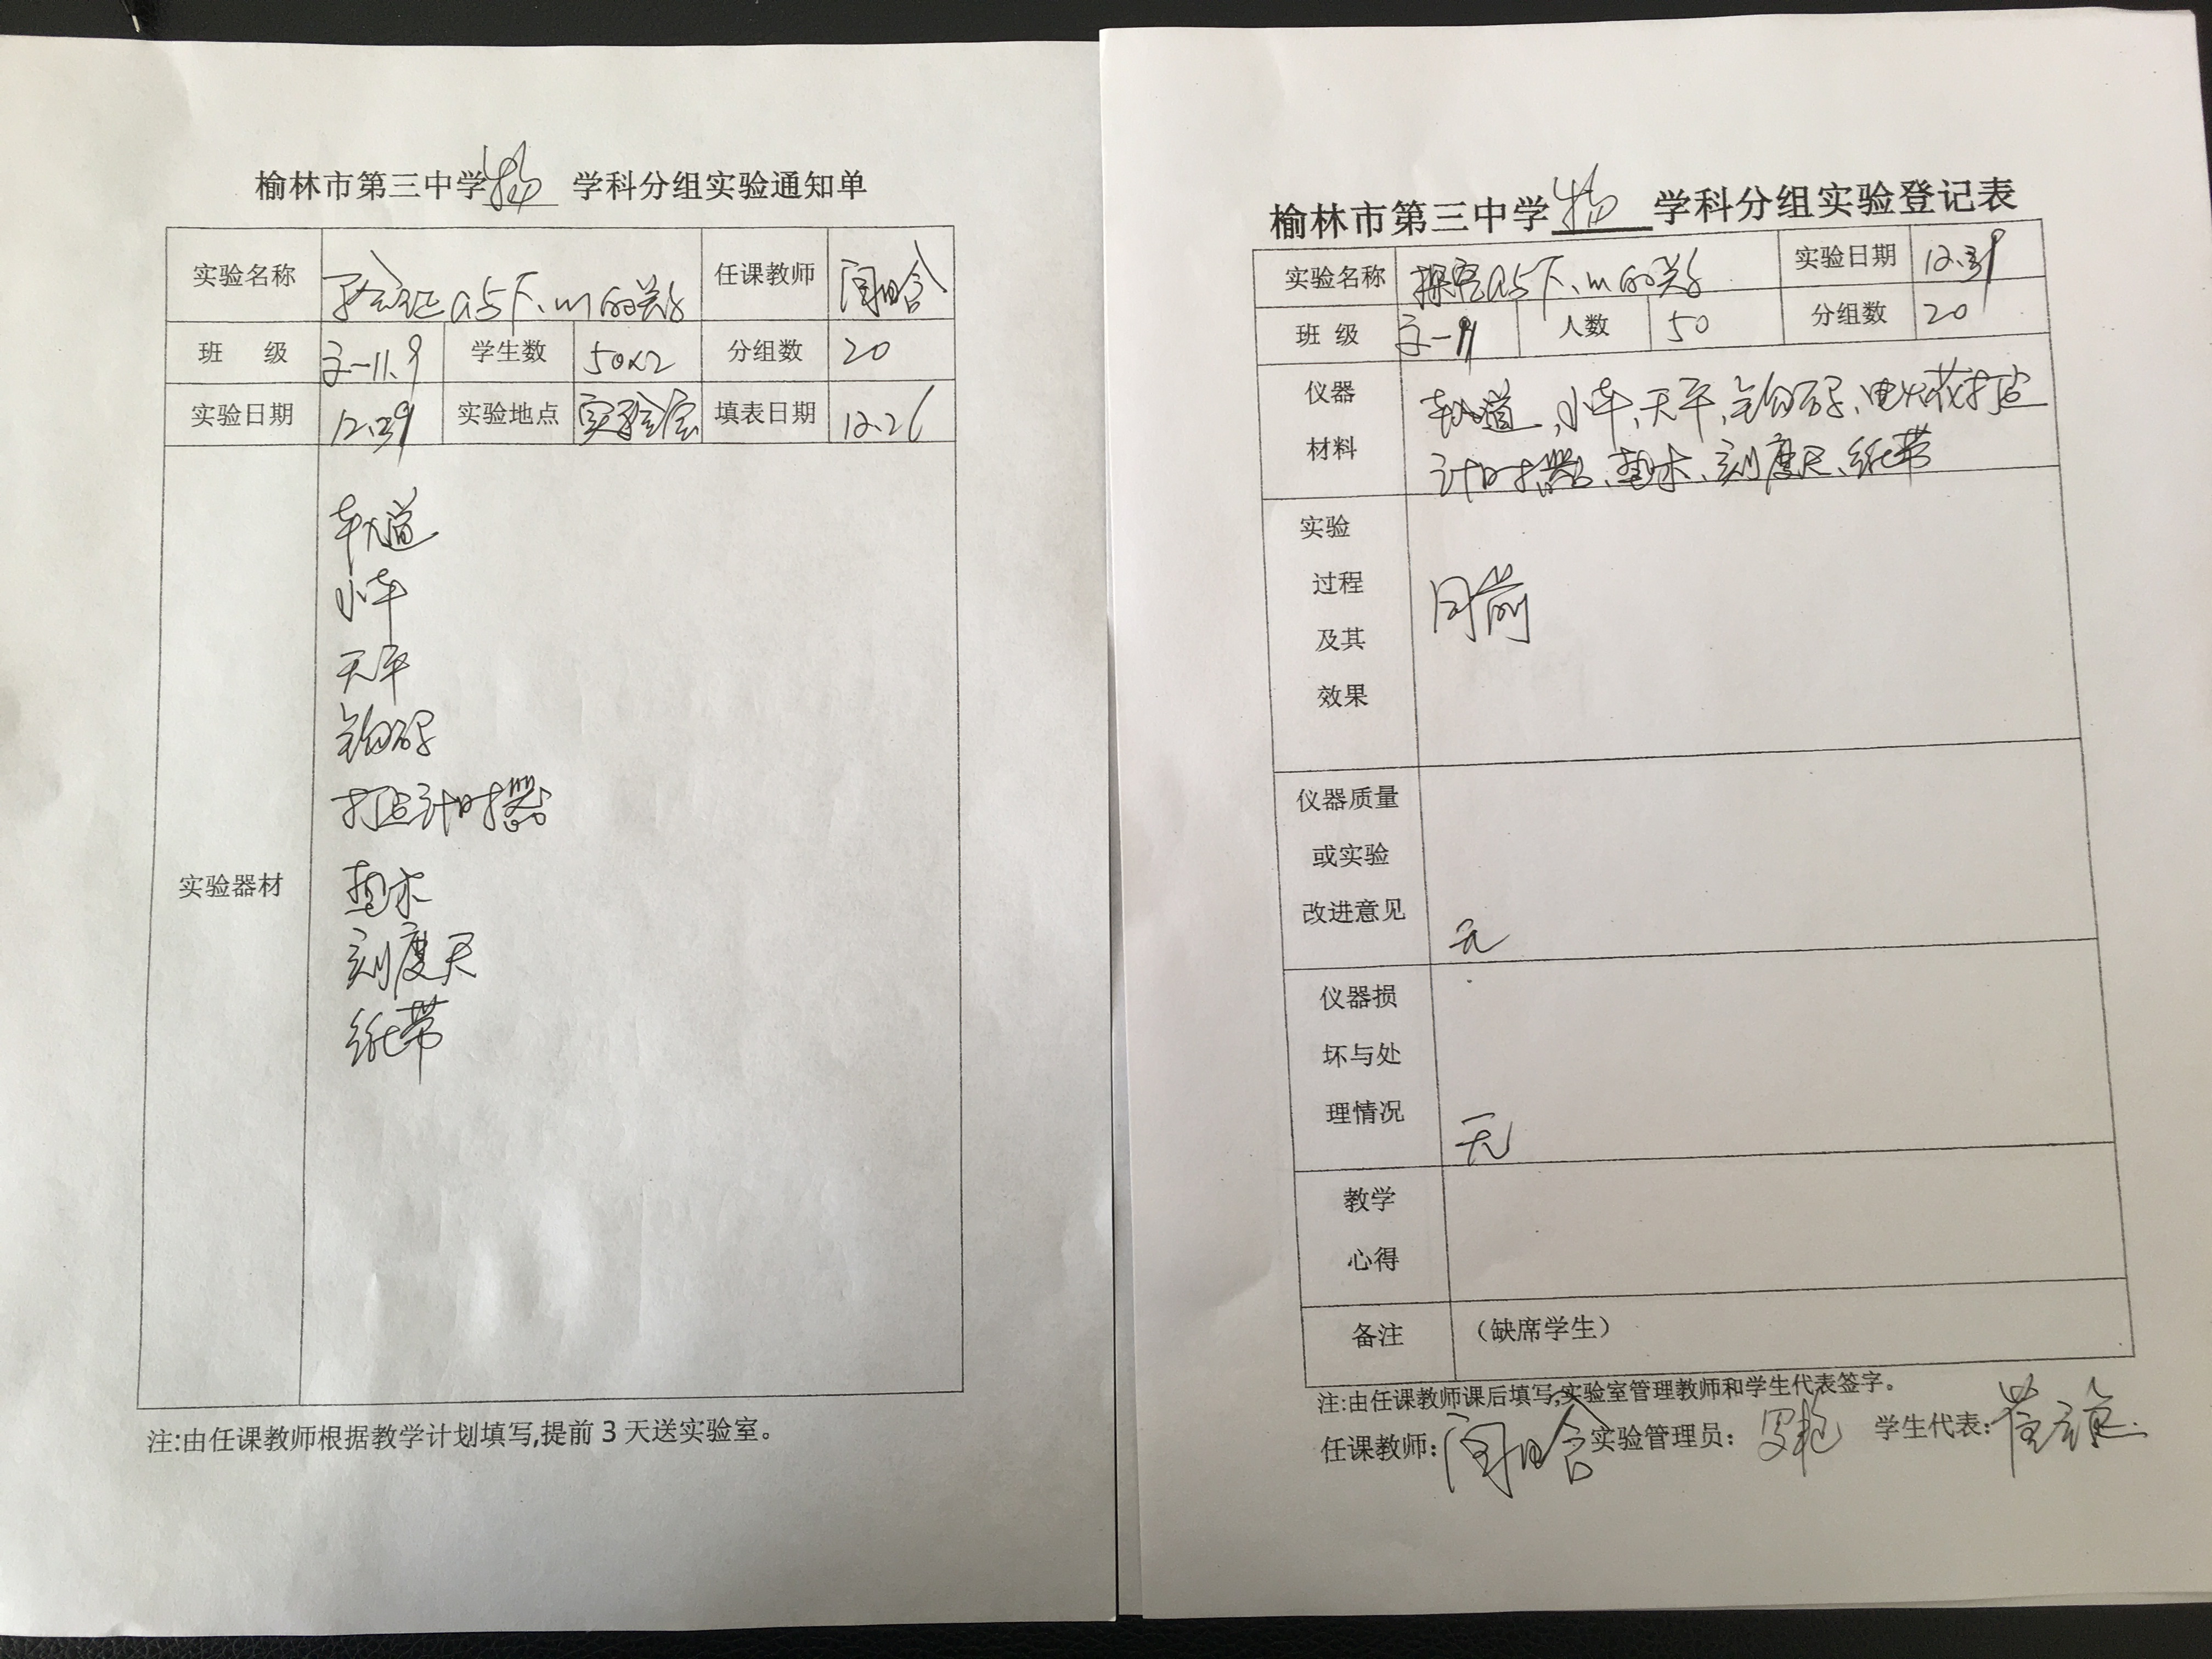 榆林市第三中学 物 学科分组实验通知单
实验名称 验证a与F、m的关系 任课教师
班 级 高一11、9 学生数 50×2 分组数 20
实验日期 实验地点 实验室 填表日期 12.26
实验器材
轨道
小车
天平
钩码
打点计时器
垫木
刻度尺
纸带
注:由任课教师根据教学计划填写,提前 3 天送实验室。
榆林市第三中学 物 学科分组实验登记表
实验名称 探究a与F、m的关系 实验日期
班 级 高一 人数 50 分组数 20
仪器 轨道、小车、天平、钩码、电火花打点
材料 计时器、垫木、刻度尺、纸带
实验
过程 同前
及其
效果
仪器质量
或实验
改进意见 无
仪器损
坏与处
理情况 无
教学
心得
备注 （缺席学生）
注:由任课教师课后填写,实验室管理教师和学生代表签字。
任课教师: 实验管理员: 学生代表: